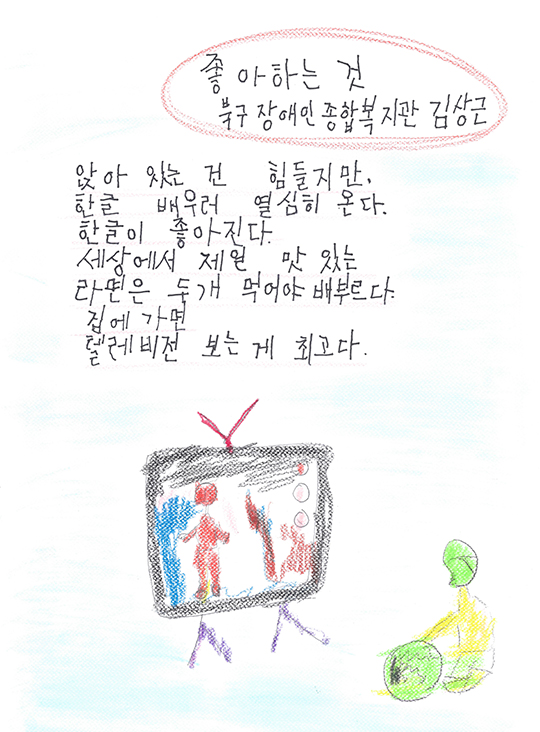 좋아하는 것
북구 장애인 종합복지관 김상근
앉아 있는 건 힘들지만.
한글 배우러 열심히 온다.
한글이 좋아진다.
세상에서 제일 맛 있는
라면은 두개 먹어야 배부르다.
집에 가면
텔레비전 보는 게 최고다.